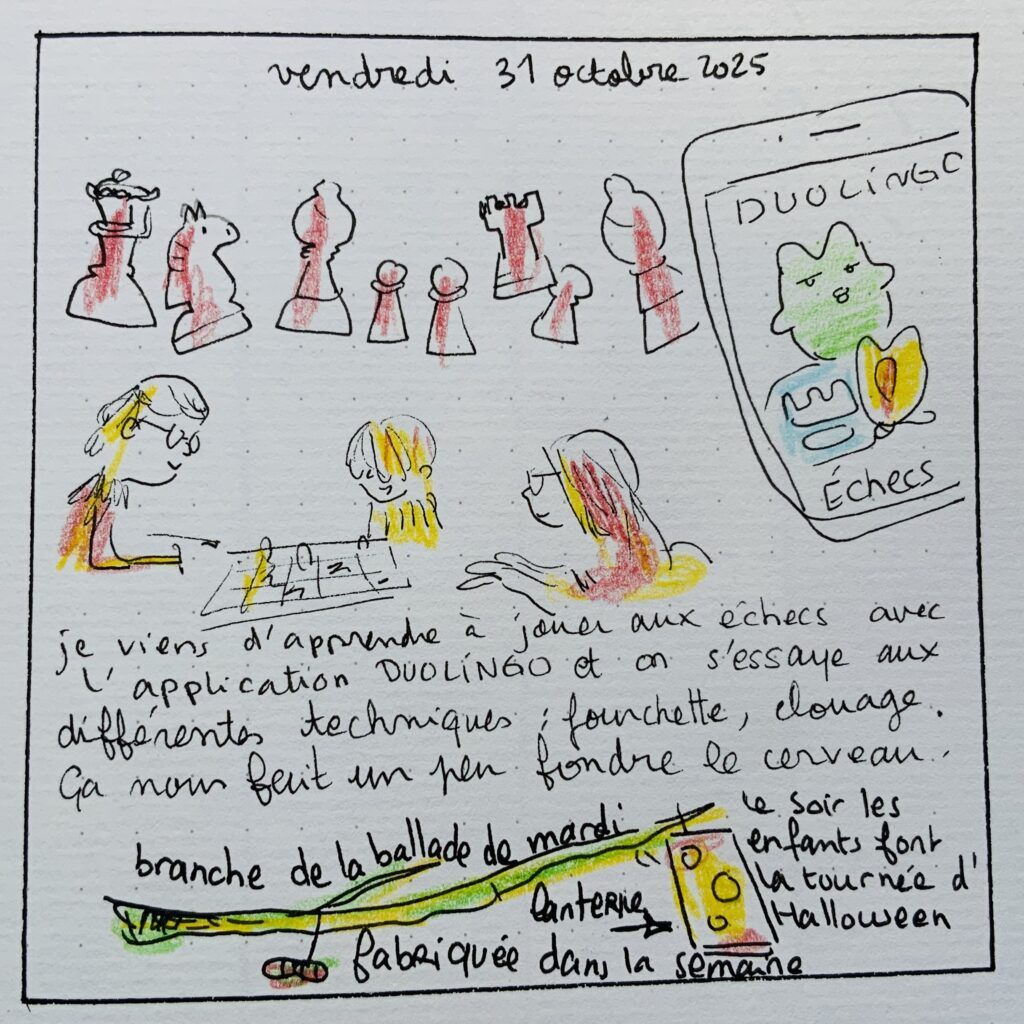 vendredi 31 octobre 2025
DUOLINGO
ELO
Échecs
je viens d'apprendre à jouer aux échecs avec
l'application DUOLINGO et on s'essaye aux
différentes techniques : fourchette, clouage.
Ça nous fait un peu fondre le cerveau.
branche de la ballade de mardi
lanterne
fabriquée dans la semaine
Le soir les
enfants font
la tournée d'
Halloween